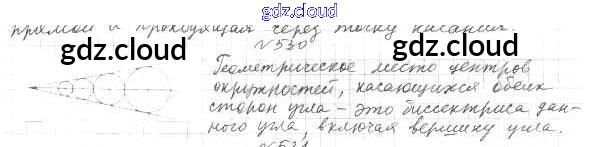 gdz.cloud
прямой и проходящая через точку касания.
gdz.cloud gdz.cloud
№530
Геометрическое место центров
окружностей, касающихся обеих
сторон угла – это биссектриса дан-
ного угла, включая вершину угла.
gdz.cloud gdz.cloud
№531